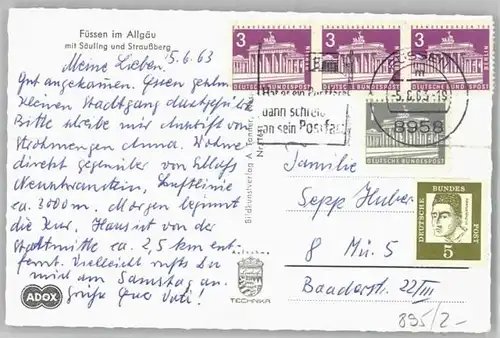 Füssen im Allgäu
mit Säuling und Straußberg
5.6.63
Meine Lieben.
Gut angekommen.
kleinen Stadtgang durchgeführt
Bitte schreibe mir Anschrift von
Strohmengen Anna. Wohne
direkt gegenüber von Schloß
Neuschwanstein, Luftlinie
ca. 3000 m. Morgen beginnt
die Kur. Haus ist von der
Stadtmitte ca. 2,5 km ent-
fernt. Vielleicht rufst Du
mich am Samstag an.
Grüße Euer Vati!
ADOX
Bildkunstverlag A. Tanner,
Aufnahme
TECHNIKA
3
3
3
DEUTSCHE BUNDESPOST
BERLIN
dann schreib
an sein Postfach
FÜSSEN
-5.6.63-18
8958
DEUTSCHE BUNDESPOST
DEUTSCHE
BUNDES
POST
5
Familie
Sepp Huber
8 Mü. 5
Baaderstr. 22/III
895/2-